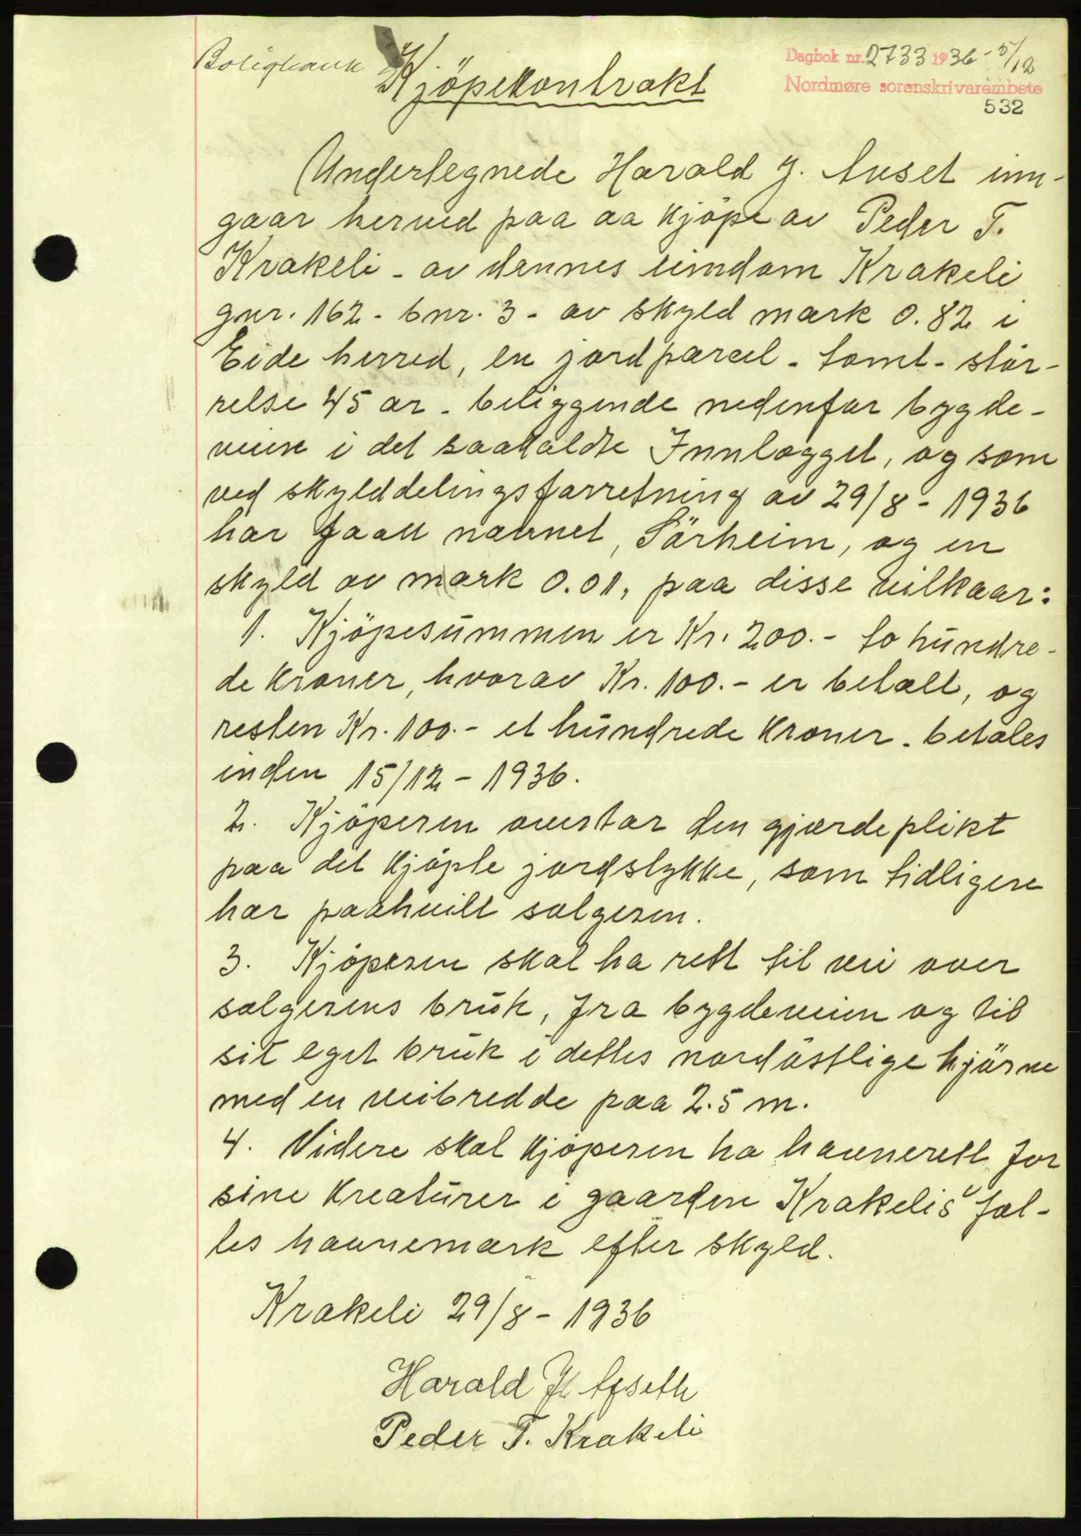 Boligbank
Kjöpekontrakt
Dagbok nr. 2733 1936 - 5/12
Nordmøre sorenskrivarembete
532
Undertegnede Harald J. Auset inn-
gaar herved paa aa kjöpe av Peder T.
Krakeli - av dennes eiendom Krakeli
gnr. 162 - bnr. 3 - av skyld mark 0.82 i
Eide herred, en jordparcel - tomt - stör-
relse 45 ar - beliggende nedenfor bygde-
veien i det saakaldte Innlægget, og som
ved skylddelingsforretning av 29/8 - 1936
har faatt navnet, Sörheim, og en
skyld av mark 0.01, paa disse vilkaar:
1. Kjöpesummen er Kr. 200.- to hundre-
de kroner, hvorav Kr. 100.- er betalt, og
resten Kr. 100.- et hundrede kroner - betales
inden 15/12 - 1936.
2. Kjöperen overtar den gjærdeplikt
paa det kjöpte jordstykke, som tidligere
har paahvilt selgeren.
3. Kjöperen skal ha rett til vei over
selgerens bruk, fra bygdeveien og til
sit eget bruk i dettes nordöstlige hjörne
med en veibredde paa 2.5 m.
4. Videre skal kjöperen ha havnerett for
sine kreaturer i gaarden Krakelis fæl-
les havnemark efter skyld.
Krakeli 29/8 - 1936
Harald J. Afseth
Peder T. Krakeli